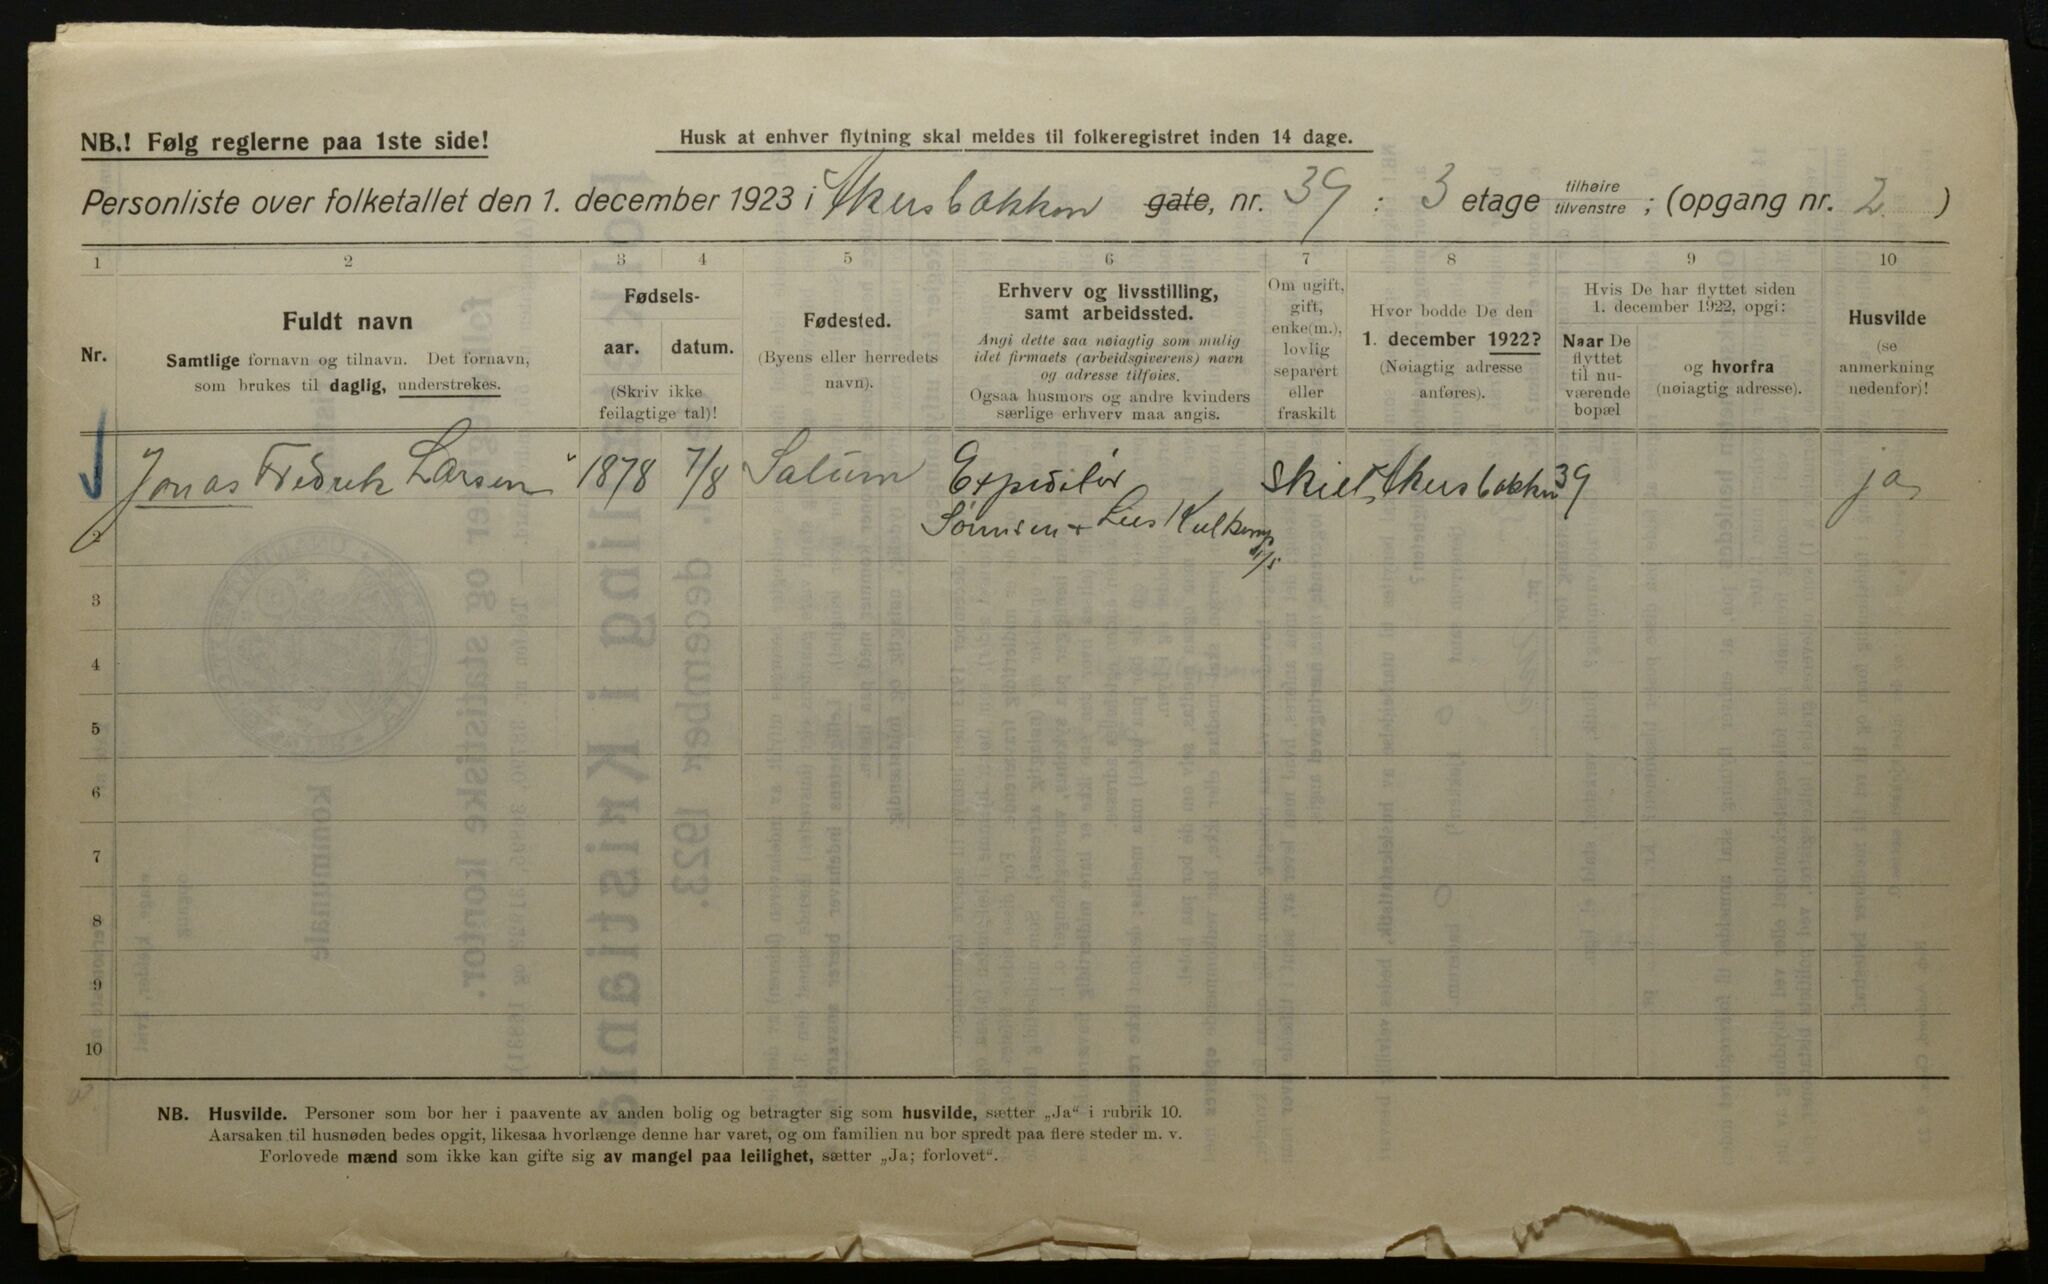 NB.! Følg reglerne paa 1ste side!
Husk at enhver flytning skal meldes til folkeregistret inden 14 dage.
Personliste over folketallet den 1. december 1923 i Akersbakken gate, nr. 39 : 3 etage tilhøire tilvenstre ; (opgang nr. 2 )
1 2 3 4 5 6 7 8 9 10
Nr.
Fuldt navn
Samtlige fornavn og tilnavn. Det fornavn,
som brukes til daglig, understrekes.
Fødsels-
aar. datum.
(Skriv ikke
feilagtige tal)!
Fødested.
(Byens eller herredets
navn).
Erhverv og livsstilling,
samt arbeidssted.
Angi dette saa nøiagtig som mulig
idet firmaets (arbeidsgiverens) navn
og adresse tilføies.
Ogsaa husmors og andre kvinders
særlige erhverv maa angis.
Om ugift,
gift,
enke(m.),
lovlig
separert
eller
fraskilt
Hvor bodde De den
1. december 1922?
(Nøiagtig adresse
anføres).
Hvis De har flyttet siden
1. december 1922, opgi:
Naar De
flyttet
til nu-
værende
bopæl
og hvorfra
(nøiagtig adresse).
Husvilde
(se
anmerkning
nedenfor)!
Jonas Fredrik Larsen 1878 7/8 Expeditør Skilt Akersbakken 39 ja
2
3
4
5
6
7
8
9
10
NB. Husvilde. Personer som bor her i paavente av anden bolig og betragter sig som husvilde, sætter „Ja" i rubrik 10.
Aarsaken til husnøden bedes opgit, likesaa hvorlænge denne har varet, og om familien nu bor spredt paa flere steder m. v.
Forlovede mænd som ikke kan gifte sig av mangel paa leilighet, sætter „Ja; forlovet".